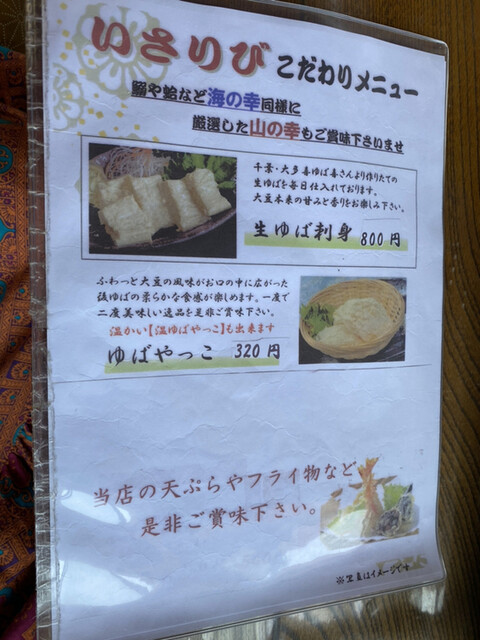 いさりび こだわりメニュー
鰯や蛤など海の幸同様に
厳選した山の幸もご賞味下さいませ
千葉・大多喜ゆば喜さんより作りたての
生ゆばを毎日仕入れております。
大豆本来の甘みと香りをお楽しみ下さい。
生ゆば刺身 800円
ふわっと大豆の風味がお口の中に広がった
後ゆばの柔らかな食感が楽しめます。一度で
二度美味しい逸品を是非ご賞味下さい。
温かい【温ゆばやっこ】も出来ます
ゆばやっこ 320円
当店の天ぷらやフライ物など
是非ご賞味下さい。
※写真はイメージです